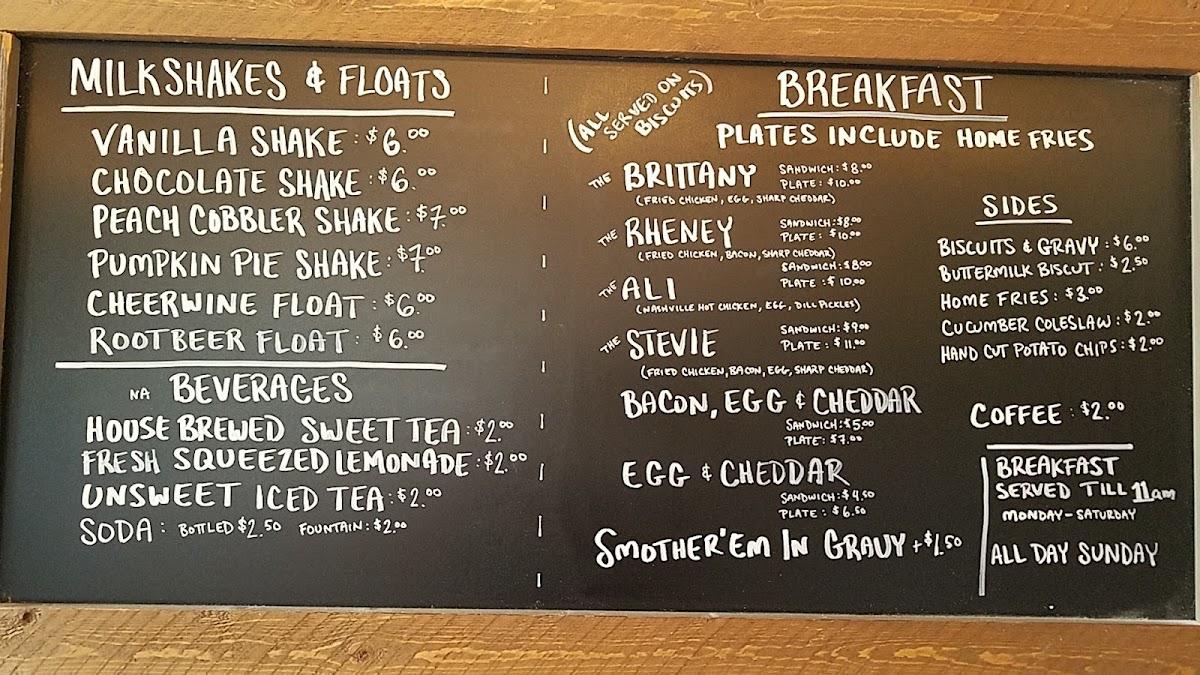 MILKSHAKES & FLOATS
VANILLA SHAKE: $6.00
CHOCOLATE SHAKE: $6.00
PEACH COBBLER SHAKE: $7.00
PUMPKIN PIE SHAKE: $7.00
CHEERWINE FLOAT: $6.00
ROOTBEER FLOAT: $6.00
NA BEVERAGES
HOUSE BREWED SWEET TEA: $2.00
FRESH SQUEEZED LEMONADE: $2.00
UNSWEET ICED TEA: $2.00
SODA: BOTTLED $2.50 FOUNTAIN: $2.00
(ALL
SERVED ON
BISCUITS)
BREAKFAST
PLATES INCLUDE HOME FRIES
THE BRITTANY
SANDWICH: $8.00
PLATE: $10.00
(FRIED CHICKEN, EGG, SHARP CHEDDAR)
THE RHENEY
SANDWICH: $8.00
PLATE: $10.00
(FRIED CHICKEN, BACON, SHARP CHEDDAR)
THE ALI
SANDWICH: $8.00
PLATE: $10.00
(NASHVILLE HOT CHICKEN, EGG, DILL PICKLES)
THE STEVIE
SANDWICH: $9.00
PLATE: $11.00
(FRIED CHICKEN, BACON, EGG, SHARP CHEDDAR)
BACON, EGG & CHEDDAR
SANDWICH: $5.00
PLATE: $7.00
EGG & CHEDDAR
SANDWICH: $4.50
PLATE: $6.50
SMOTHER'EM IN GRAVY + $1.50
SIDES
BISCUITS & GRAVY: $6.00
BUTTERMILK BISCUT: $2.50
HOME FRIES: $3.00
CUCUMBER COLESLAW: $2.00
HAND CUT POTATO CHIPS: $2.00
COFFEE: $2.00
BREAKFAST
SERVED TILL 11am
MONDAY-SATURDAY
ALL DAY SUNDAY